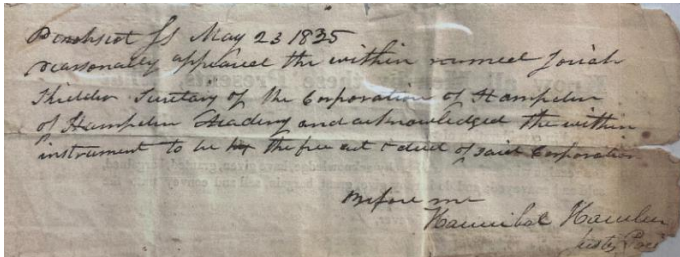 Penobscot ss May 23 1835
Personally appeared the within named Josiah
Secretary of the Corporation of Hampden
of Hampden Academy and acknowledged the within
instrument to be the free act & deed of said Corporation
Before me
Hannibal Hamlin